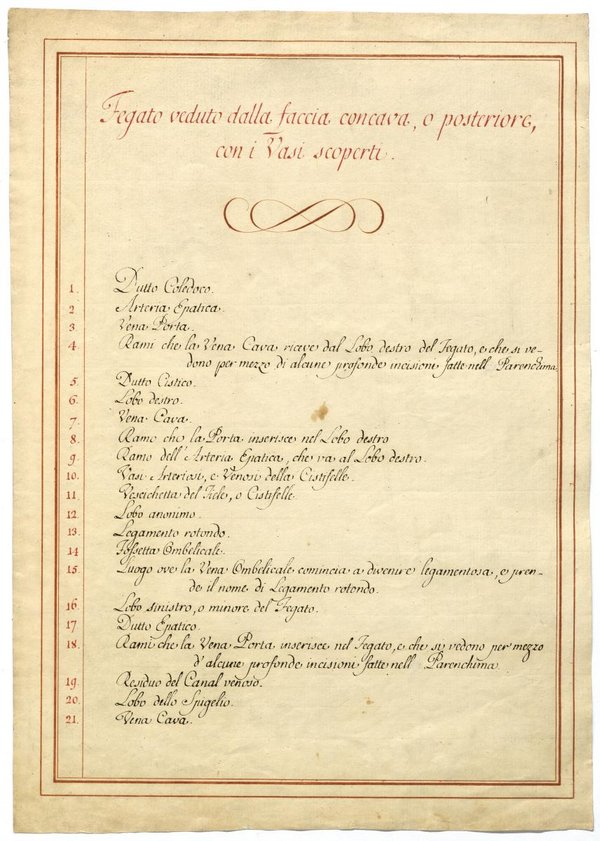 Fegato veduto dalla faccia concava, o posteriore,
con i Vasi scoperti.
1. Dutto Coledoco.
2 Arteria Epatica
3 Vena Porta.
4 Rami che la Vena Cava riceve dal Lobo destro del Fegato, e che si ve-
dono per mezzo di alcune profonde incisioni fatte nell' Parenchima
5. Dutto Cistico.
6. Lobo destro.
7. Vena Cava.
8. Ramo che la Porta inserisce nel Lobo destro
9. Ramo dell' Arteria Epatica, che va al Lobo destro.
10. Vasi Arteriosi, e Venosi della Cistifelle.
11. Vescichetta del Fiele, o Cistifelle.
12. Lobo anonimo.
13. Legamento rotondo.
14 Fossetta Ombelicale.
15. Luogo ove la Vena Ombelicale comincia a divenire legamentosa, e pren-
de il nome di Legamento rotondo.
16. Lobo sinistro, o minore del Fegato.
17. Dutto Epatico.
18. Rami che la Vena Porta inserisce nel Fegato, e che si vedono per mezzo
d'alcune profonde incisioni fatte nell' Parenchima.
19. Residuo del Canal venoso.
20. Lobo dello Spigelio.
21. Vena Cava.